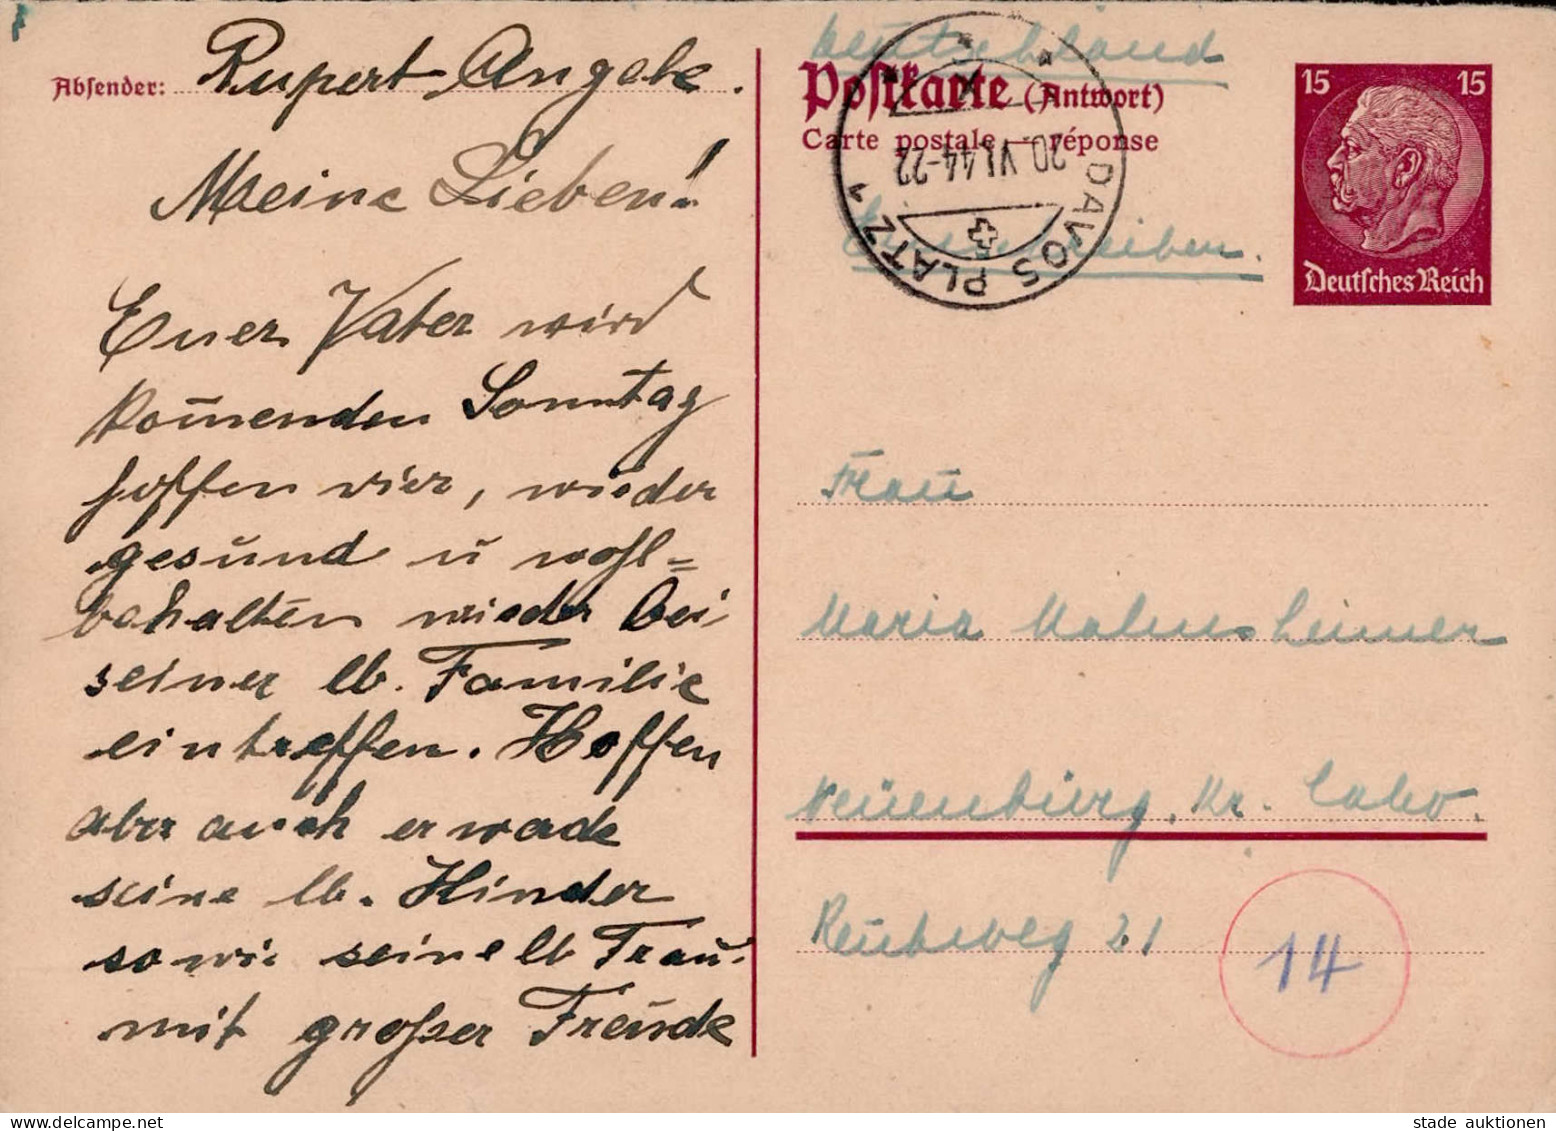 Absender: Rupert Angele.
Meine Lieben!
Euer Vater wird
kom̄enden Sonntag
hoffen wier, wieder
gesund u wohl=
behalten wieder bei
seiner lb. Familie
eintreffen. Hoffen
aber auch er werde
seine lb. Kinder
sowie seine lb Frau
mit großer Freude
Deutschland
Postkarte (Antwort)
Carte postale — réponse
DAVOS PLATZ 1
20.VI.44-22
Einschreiben.
15 15
Deutsches Reich
Frau
Maria Malmsheimer
Neuenburg, Kr. Calw.
21
14
stade auktionen